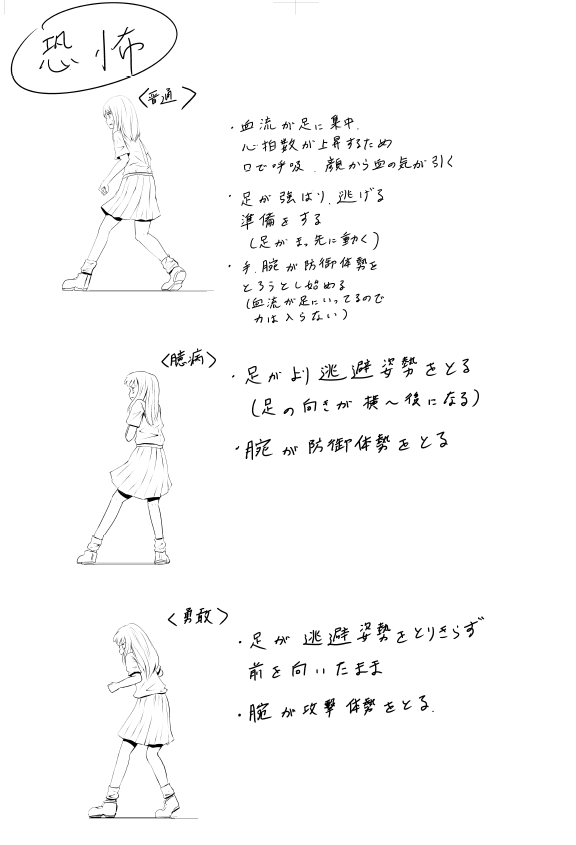 恐怖
<普通>
・血流が足に集中.
心拍数が上昇するため
口で呼吸.顔から血の気が引く
・足が強ばり.逃げる
準備をする
(足がまっ先に動く)
・手.腕が防御体勢を
とろうとし始める
(血流が足にいってるので
力は入らない)
<臆病>
・足がより逃避姿勢をとる
(足の向きが横〜後になる)
・腕が防御体勢をとる
<勇敢>
・足が逃避姿勢をとりきらず
前を向いたまま
・腕が攻撃体勢をとる.